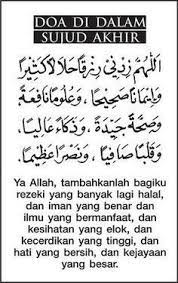 DOA DI DALAM
SUJUD AKHIR
اَللّٰهُمَّ زِدْنِي رِزْقًا حَلَالًا كَثِيْرًا
وَإِيْمَانًا صَحِيْحًا ، وَعُلُوْمًا نَافِعَةً
وَصِحَّةً جَيِّدَةً ، وَذَكَاءً عَالِيًا ،
وَقَلْبًا صَافِيًا ، وَنَصْرًا عَظِيْمًا .
Ya Allah, tambahkanlah bagiku
rezeki yang banyak lagi halal,
dan iman yang benar dan
ilmu yang bermanfaat, dan
kesihatan yang elok, dan
kecerdikan yang tinggi, dan
hati yang bersih, dan kejayaan
yang besar.